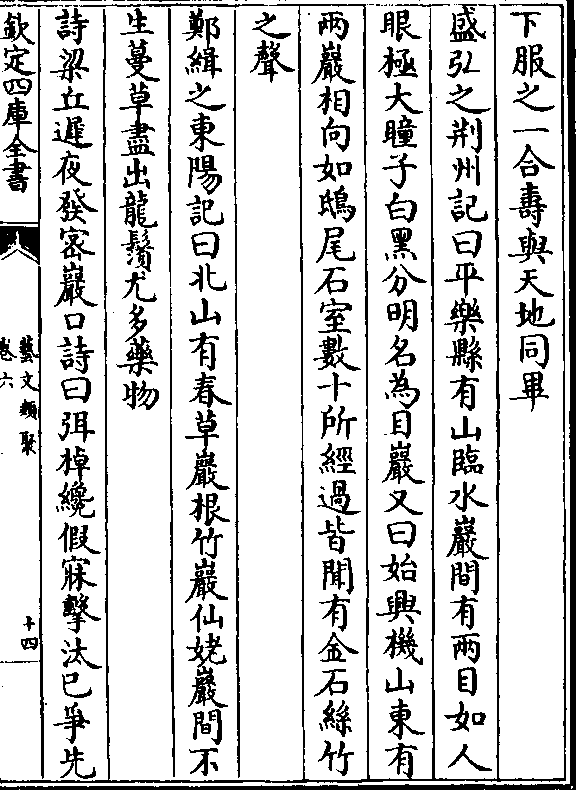 下服之一合壽與天地同畢
盛弘之荆州記曰平樂縣有山臨水巖間有兩目如人
眼極大瞳子白黑分明名為目巖又曰始興機山東有
兩巖相向如鴟尾石室數十所經過皆聞有金石絲竹
之聲
鄭緝之東陽記曰北山有春草巖根竹巖仙姥巖間不
生蔓草盡出龍鬚尤多藥物
詩梁丘遲夜發密巖口詩曰弭棹纔假寐擊汰已爭先
欽定四庫全書
藝文類聚
卷六
十四